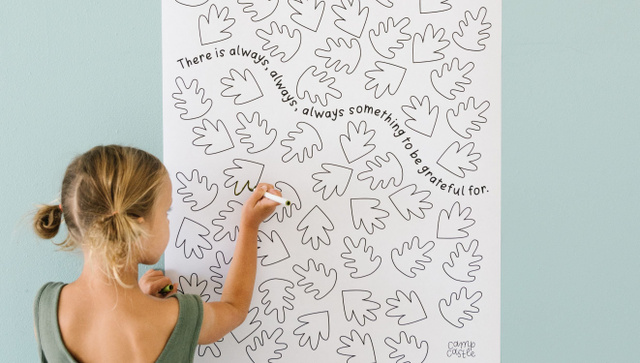 There is always, always, always, always something to be grateful for.
camp
castle